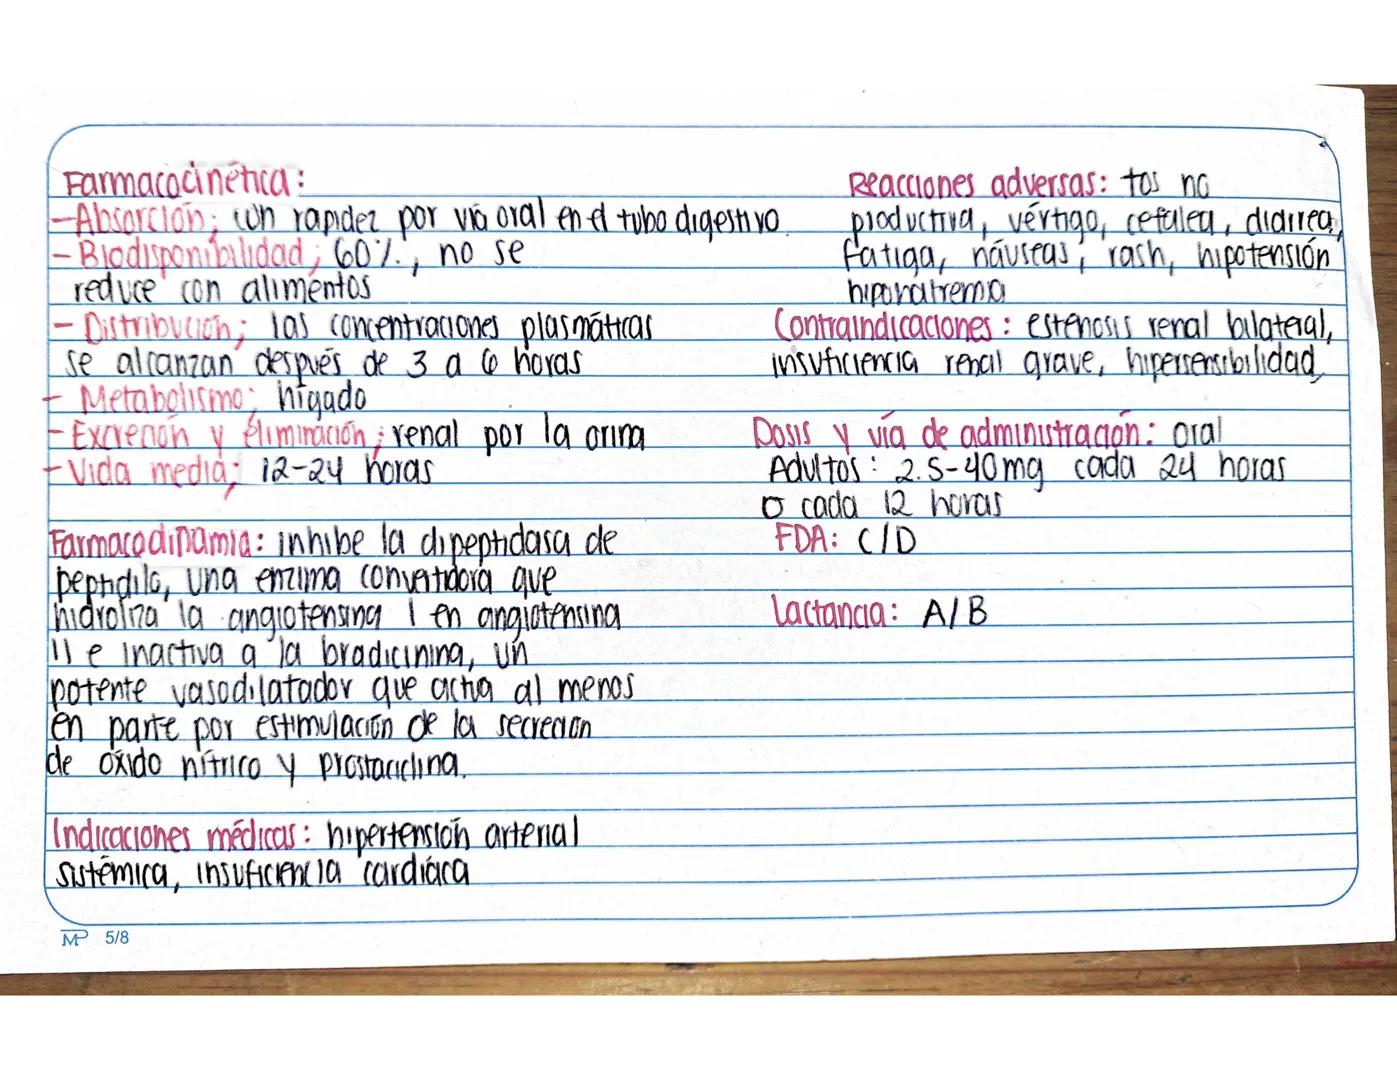 Farmacocinética:
-Absorción; con rapidez por vía oral en el tubo digestivo.
- Biodisponibilidad; 60%., no se
reduce con alimentos
- Distribución; las concentraciones plasmáticas
se alcanzan después de 3 a 6 horas
- Metabolismo; hígado
- Excreción y eliminación; renal por la orina
- Vida media; 12-24 horas
Farmacodinamia: inhibe la dipeptidasa de
peptidilo, una enzima convertidora que
hidroliza la angiotensina I en angiotensina
II e inactiva a la bradicinina, un
potente vasodilatador que actúa al menos
en parte por estimulación de la secreción
de óxido nítrico y prostaciclina.
Indicaciones médicas: hipertensión arterial
sistémica, insuficiencia cardiáca
Reacciones adversas: tos no
productiva, vértigo, cefalea, diarrea,
fatiga, náuseas, rash, hipotensión
hiponatremia
Contraindicaciones: estenosis renal bilateral,
insuficiencia renal grave, hipersensibilidad
Dosis y vía de administración: oral
Adultos: 2.5-40mg cada 24 horas
o cada 12 horas
FDA: C/D
Lactancia: A/B
MP 5/8